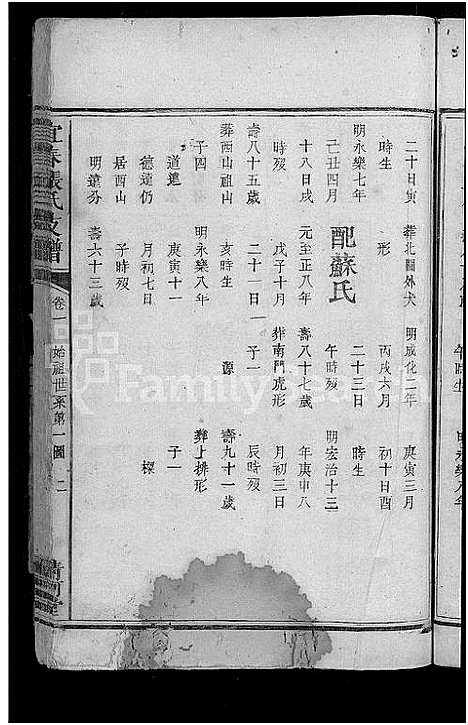 二十日寅 葬北關外犬 明成化二年 庚寅三月
時生 形 丙戌六月 初十日酉
明永樂七年 配蘇氏 二十三日 時生
己丑四月 午時歿 明宏治十三
十八日戌 元至正八年 壽八十七歲 年庚申八
時歿 戊子十月 葬南門虎形 月初三日
壽八十五歲 二十一日 子一 辰時歿
葬西山祖山 亥時生 源 壽九十一歲
子四 明永樂八年 葬上排形
道遠 庚寅十一 子一
德遠仍 月初七日 樑
居西山 子時歿
明遠分 壽六十三歲
宜春張氏支譜 卷一 始祖世系第一圖 十二 清河堂
午時生